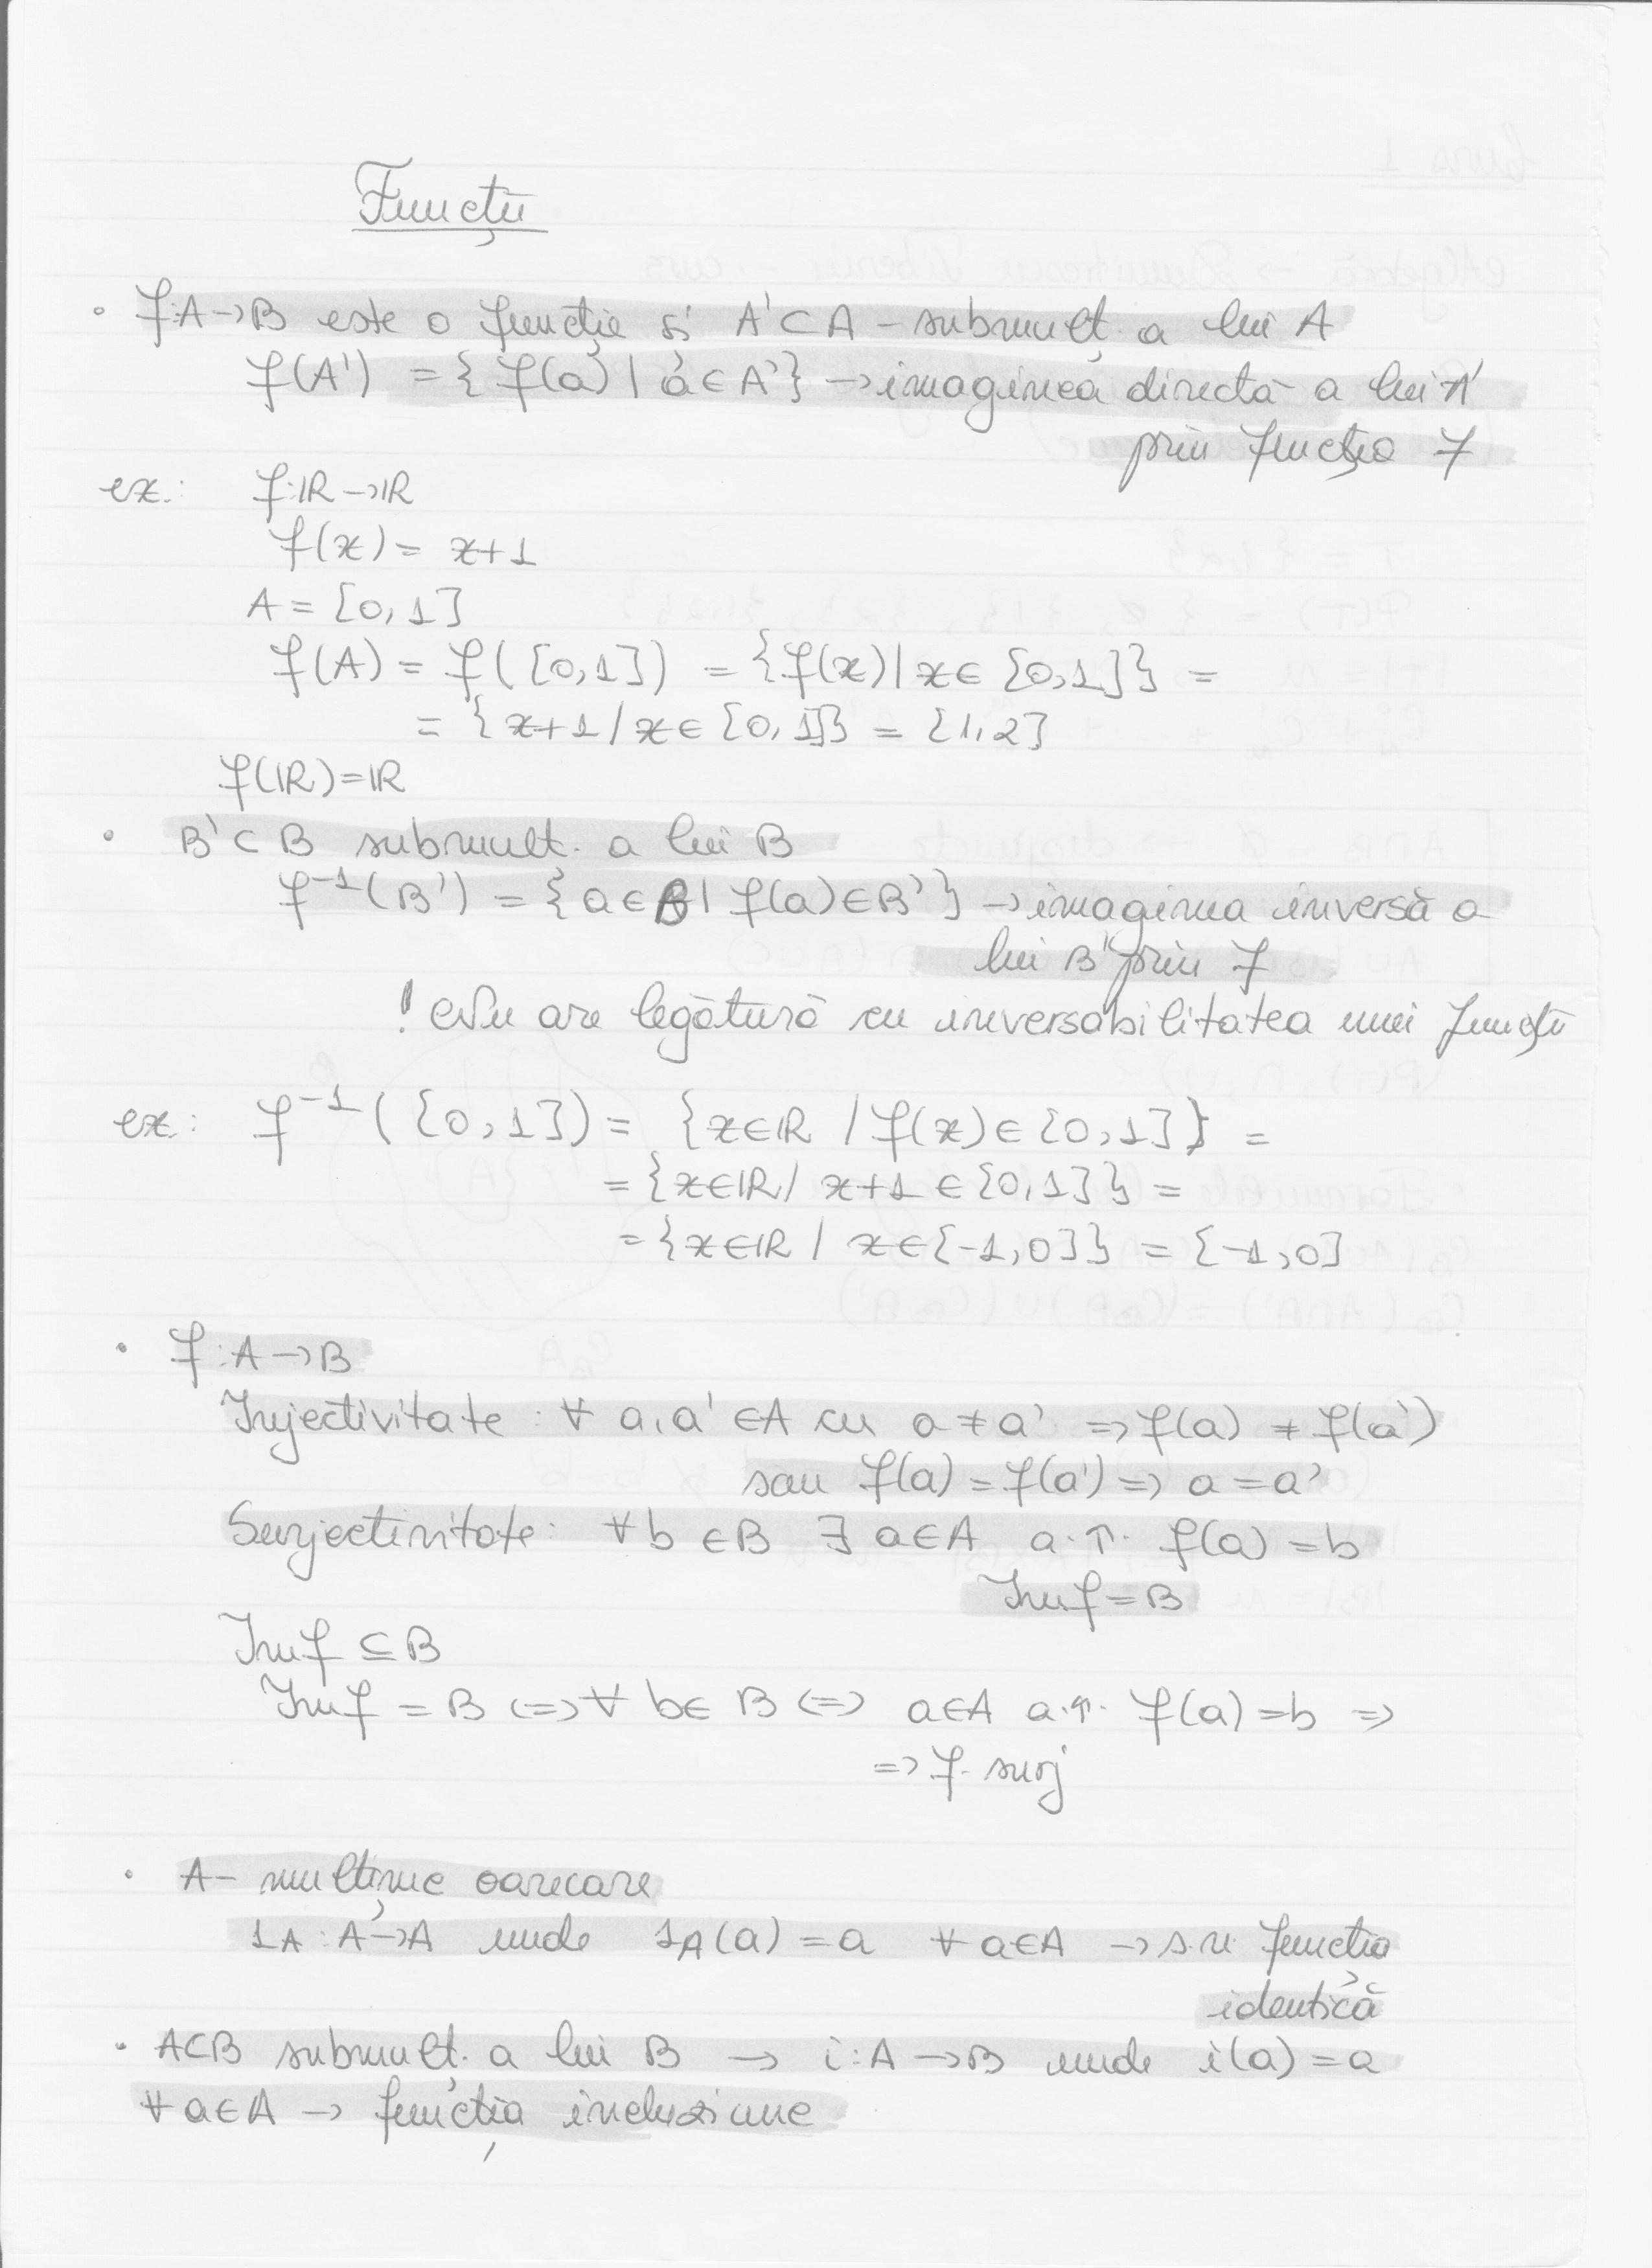 Funcții
• f:A→B este o funcție și A'⊂A – submult. a lui A
f(A') = {f(a) | a∈A'} → imaginea directă a lui A'
prin funcția f
ex.: f:ℝ→ℝ
f(x) = x+1
A = [0,1]
f(A) = f([0,1]) = {f(x) | x∈[0,1]} =
= {x+1 / x∈[0,1]} = [1,2]
f(ℝ)=ℝ
• B'⊂B submult. a lui B
f⁻¹(B') = {a∈B | f(a)∈B'} → imaginea inversă a
lui B' prin f
! Nu are legătură cu inversabilitatea unei funcții
ex.: f⁻¹([0,1]) = {x∈ℝ / f(x)∈[0,1]} =
= {x∈ℝ / x+1∈[0,1]} =
= {x∈ℝ / x∈[-1,0]} = [-1,0]
• f:A→B
Injectivitate: ∀ a,a'∈A cu a≠a' ⇒ f(a) ≠ f(a')
sau f(a)=f(a') ⇒ a=a'
Surjectivitate: ∀b∈B ∃ a∈A a.î. f(a)=b
Imf=B
Imf ⊆ B
Imf = B ⇔ ∀ b∈B ⇔ a∈A a.î. f(a)=b ⇒
⇒ f. surj
• A – mulțime oarecare
1_A : A→A unde 1_A(a) = a ∀ a∈A → s.n. funcția
identică
• A⊂B submult. a lui B → i:A→B unde i(a)=a
∀ a∈A → funcția incluziune